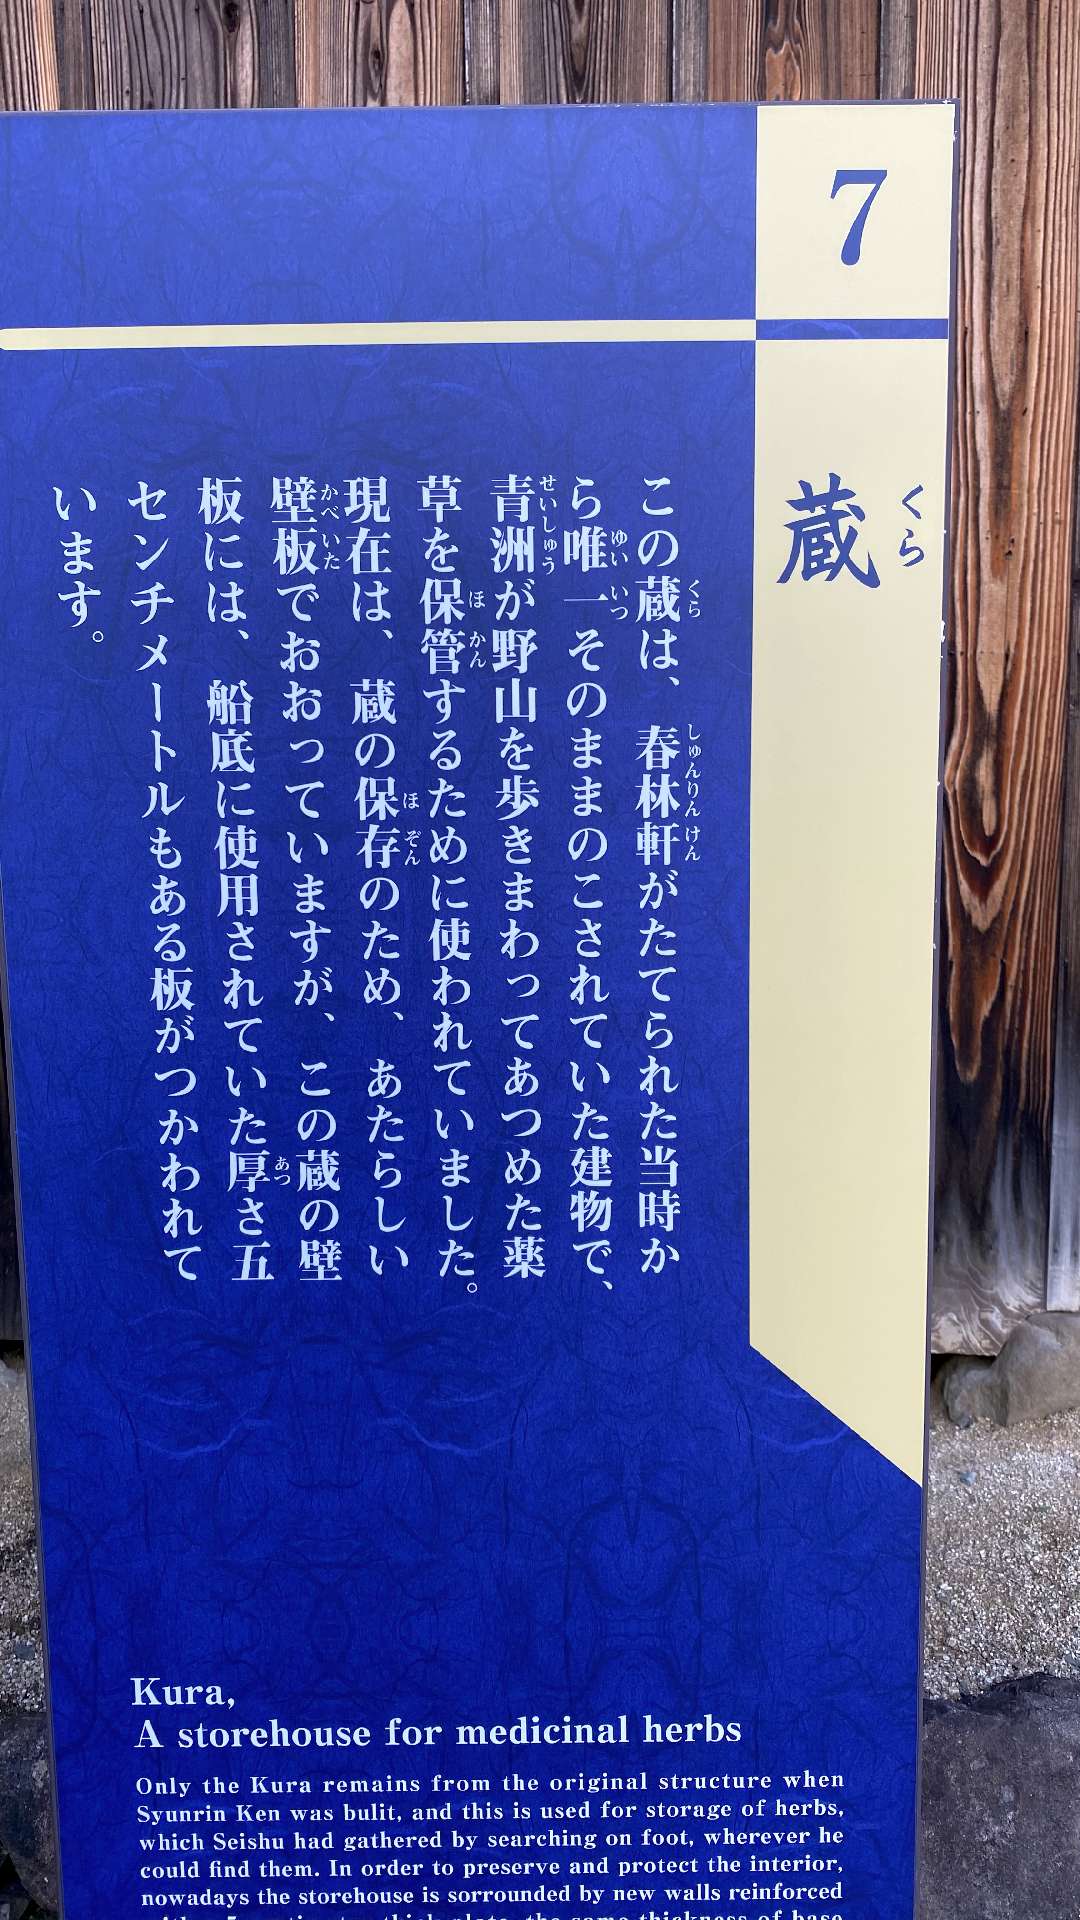 7
蔵
くら
この蔵は、春林軒がたてられた当時か
ら唯一そのままのこされていた建物で、
青洲が野山を歩きまわってあつめた薬
草を保管するために使われていました。
現在は、蔵の保存のため、あたらしい
壁板でおおっていますが、この蔵の壁
板には、船底に使用されていた厚さ五
センチメートルもある板がつかわれて
います。
くら
しゅんりんけん
ゆいいつ
せいしゅう
ほかん
ほぞん
かべいた
あつ
Kura,
A storehouse for medicinal herbs
Only the Kura remains from the original structure when
Syunrin Ken was bulit, and this is used for storage of herbs,
which Seishu had gathered by searching on foot, wherever he
could find them. In order to preserve and protect the interior,
nowadays the storehouse is sorrounded by new walls reinforced